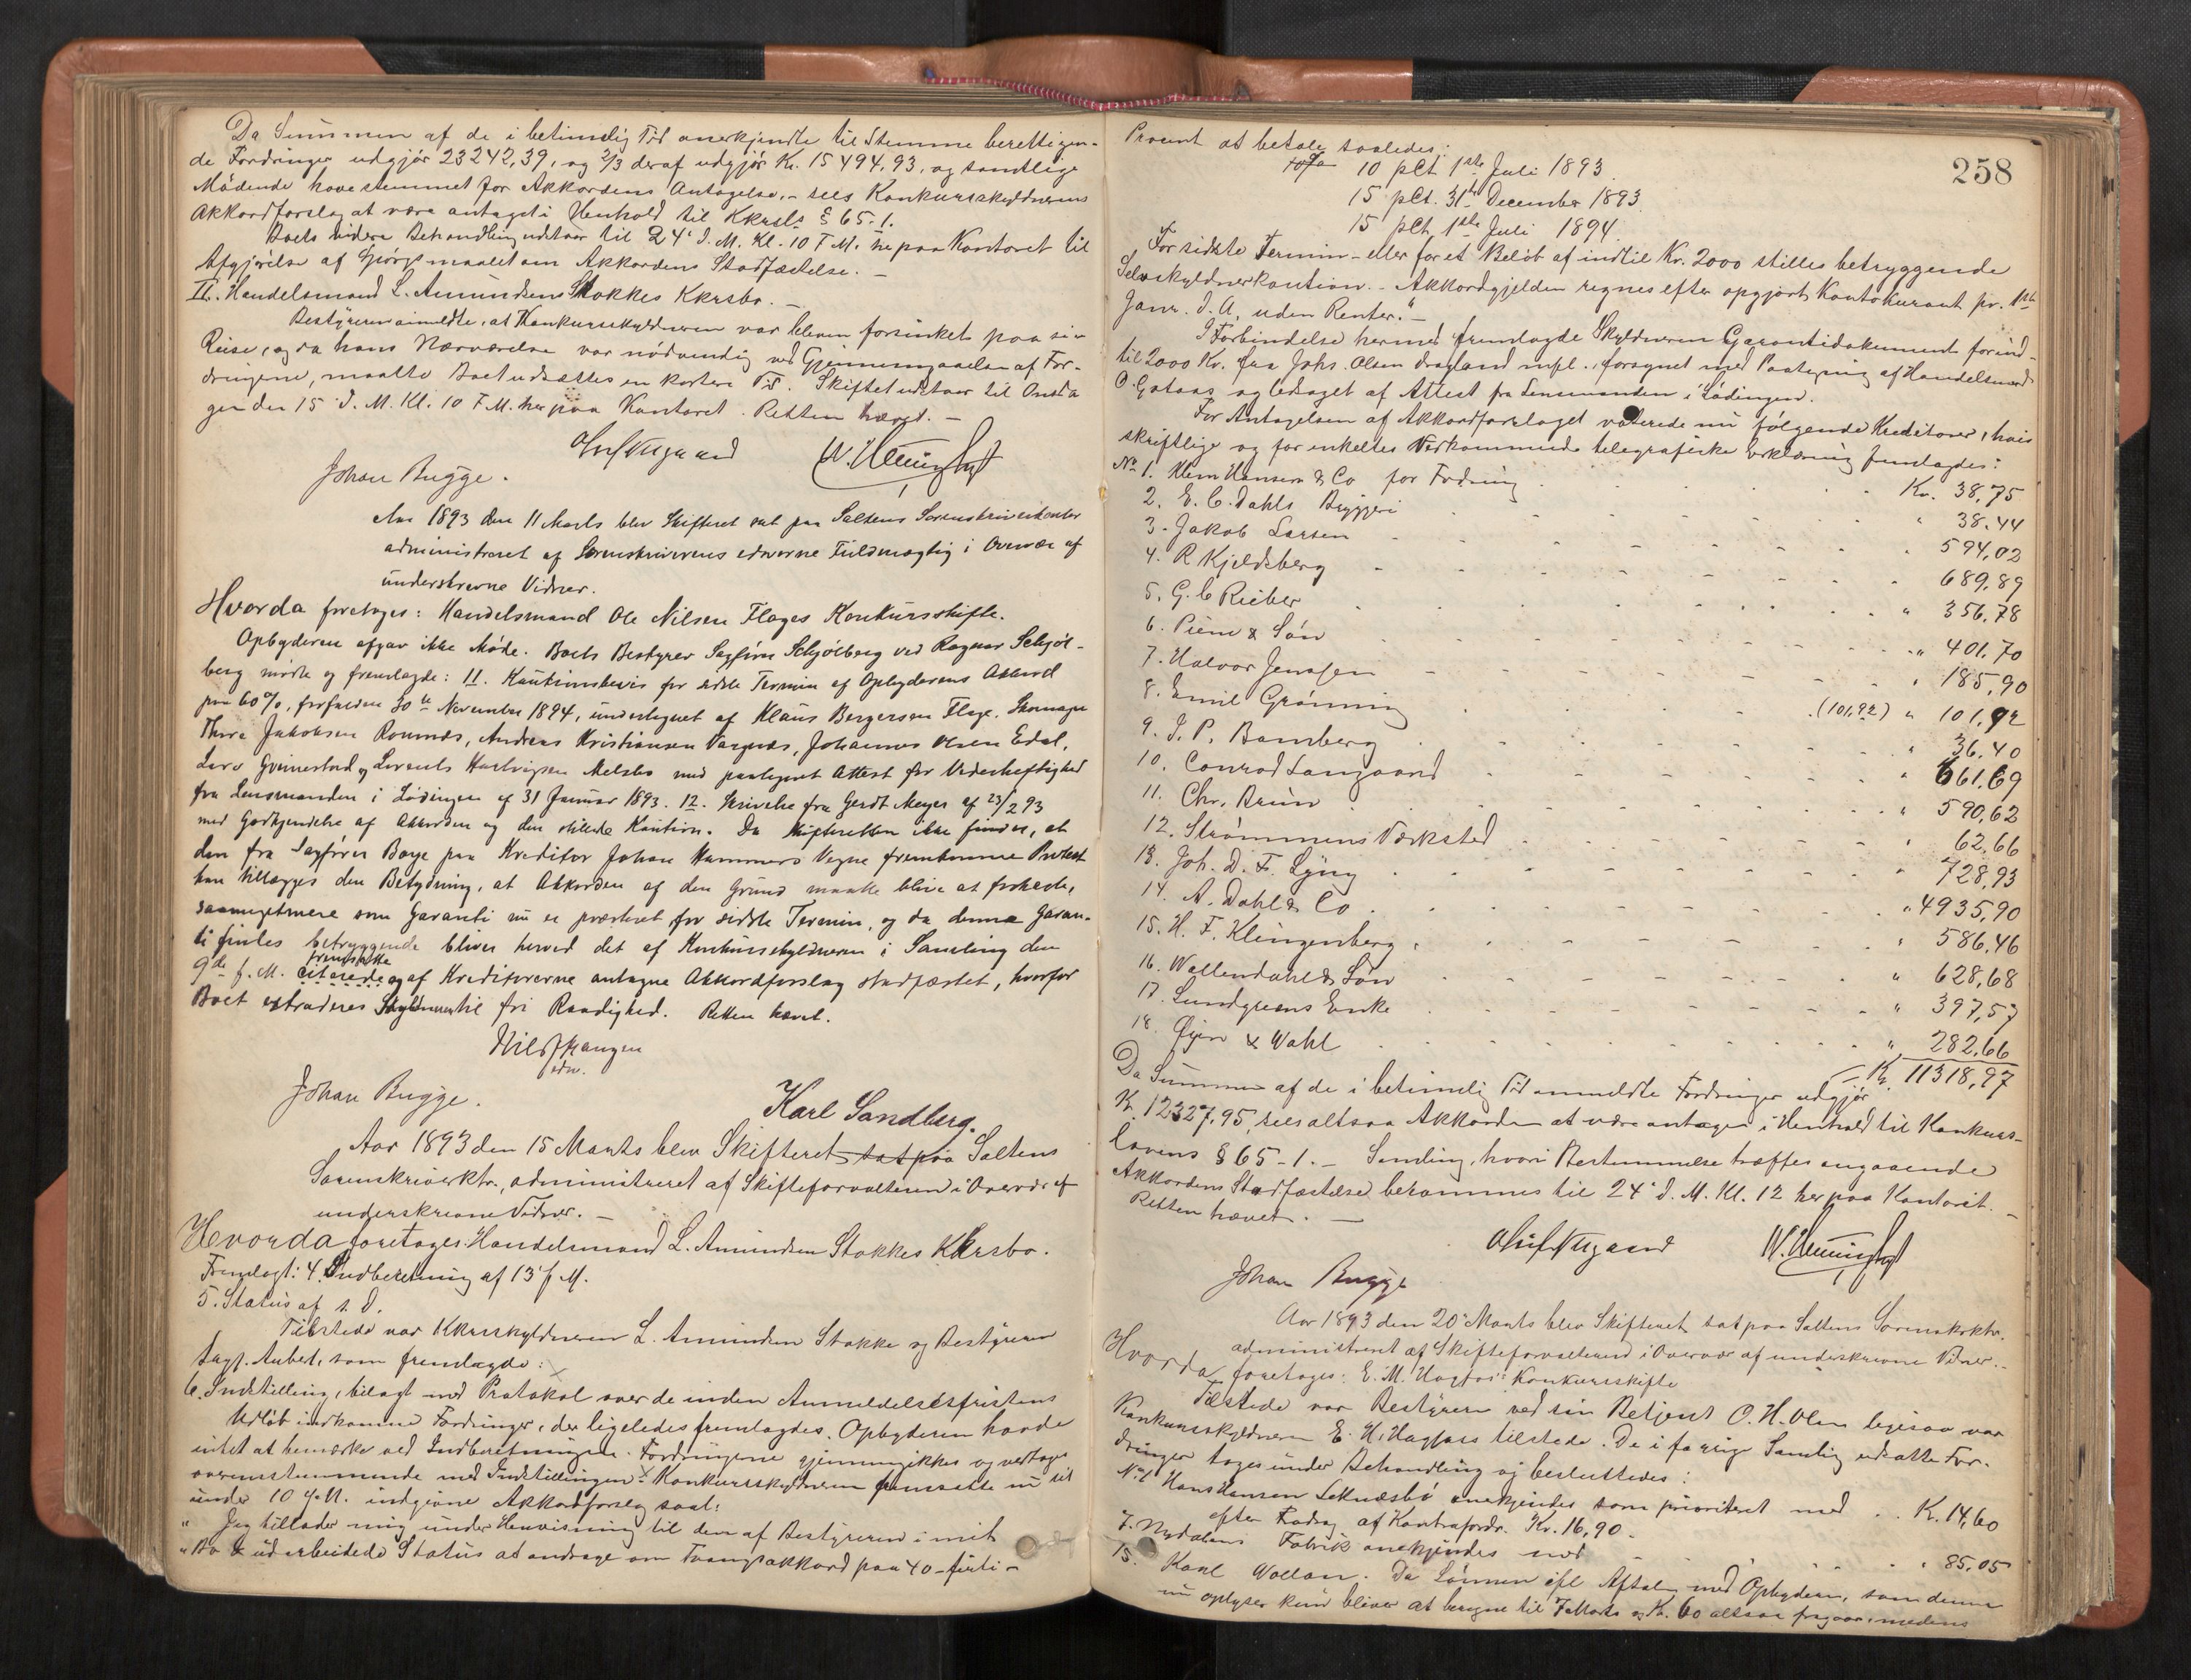 Da Summen af de i betimelig Tid anerkjendte til Stemme berettigen-
de Fordringer udgjør 23242,39, og 2/3 deraf udgjør Kr. 15494,93, og samtlige
Mødende have stemmet for Akkordens Antagelse, - sees Konkursskyldnerens
Akkordforslag at være antaget i Henhold til Kkrsls § 65-1.
Boets videre Behandling udstaar til 24' d. M. Kl. 10 F.M. her paa Kontoret til
Afgjørelse af Spørgsmaalet om Akkordens Stadfæstelse. -
II. Handelsmand L. Amundsen Stokkes Kkrsbo. -
Bestyreren anmeldte, at Konkursskyldneren var bleven forsinket paa sin
Reise, og da hans Nærværelse var nødvendig ved Gjennemgaaelsen af For-
dringerne, maatte Boet udsættes en kortere Tid. Skiftet udstaar til Onsda
gen den 15' d. M. Kl. 10 F.M. her paa Kontoret. Retten hævet. -
Johan Bugge.
Aar 1893 den 11 Marts blev Skifteret sat paa Saltens Sorenskriverkontor
administreret af Sorenskriverens edsvorne Fuldmægtig i Overvær af
underskrevne Vidner.
Hvorda foretoges: Handelsmand Ole Nilsen Flages Konkursskifte.
Opbyderen afgav ikke Møde. Boets Bestyrer Sagfører Schjølberg ved Ragnar Schjøl-
berg mødte og fremlagde: 11. Kautionsbevis for sidste Termin af Opbyderens Akkord
paa 60%, forfalden 30te November 1894, undertegnet af Klaus Bergersen Flage,
Jakobsen Andreas Kristiansen Johannes Olsen Edal,
Lars og Lorents Hartvigsen med paategnet Attest for Vederheftighed
fra Lensmanden i Lødingen af 31 Januar 1893. 12. Skrivelse fra Gerdt Meyer af 23/2 93
med Godkjendelse af Akkorden og den stillede Kaution. Da Skifteretten ikke finder, at
den fra Sagfører Boye paa Kreditor Johan Hammers Vegne fremkomne Protest
kan tillægges den Betydning, at Akkorden af den Grund maatte blive at forkaste,
saameget mere som Garanti nu er præsteret for sidste Termin, og da denne Garan-
ti findes betryggende bliver herved det af Konkursskyldneren i Samling den
9de f. M. fremsatte og af Kreditorerne antagne Akkordforslag stadfæstet, hvorfor
Boet extraderes Skyldneren til fri Raadighed. Retten hævet.
edsv.
Johan Bugge.
Karl Sandberg.
Aar 1893 den 15 Marts blev Skifteret sat paa Saltens
Sorenskriverktr., administreret af Skifteforvalteren i Overvær af
underskrevne Vidner. -
Hvorda foretoges: Handelsmand L. Amundsen Stokkes Kkrsbo.
Fremlagt: 4. Indberetning af 13' f. M.
5. Status af s. D.
Tilstede var Kkursskyldneren L. Amundsen Stokke og Bestyreren
Sagf. Aubert, som fremlagde:
6. Indstilling, bilagt med Protokol over de inden Anmeldelsesfristens
Udløb indkomne Fordringer, der ligeledes fremlagdes. Opbyderen havde
intet at bemærke ved Indberetningen. Fordringerne gjennemgikkes og vedtoges
overensstemmende med Indstillingen. Konkursskyldneren fremsatte nu sit
under 10 f.M. indgivne Akkordforslag saal:
"Jeg tillader mig under Henvisning til den af Bestyreren i mit
"Bo udarbeidede Status at andrage om Tvangsakkord paa 40 - førti -
258
Procent at betale saaledes:
10 pCt 1ste Juli 1893.
15 pCt. 31te December 1893.
15 pCt. 1ste Juli 1894.
For sidste Termin - eller for et Beløb af indtil Kr. 2000 stilles betryggende
Selvskyldnerkaution. - Akkordgjelden regnes efter opgjort Kontokurant pr. 1ste
Janr. d. A. uden Renter." -
I Forbindelse hermed fremlagde Skyldneren Garantidokument for ind-
til 2000 Kr. fra Johs. Olsen Dragland mfl., forsynet med Paategning af Handelsmand
O. Gotaas og ledsaget af Attest fra Lensmanden i Lødingen.
For Antagelsen af Akkordforslaget voterede nu følgende Kreditorer, hvis
skriftlige og for enkeltes Vedkommende telegrafiske Erklæring fremlagdes:
No 1. Klem Hansen & Co for Fordring Kr. 38,75
2. E. C. Dahls Bryggeri " 38.44
3. Jakob Larsen " 594,02
4. R Kjeldsberg 689,89
5. G. C Rieber " 356,78
6. Piene & Søn " 401.70
7. Halvor Jenssen " 185,90
8. Emil Grønning (101,92) " 101,92
9. J. P. Bamberg " 36.40
10. Conrad Langaard " 661,69
11. Chr. Bruun " 590,62
12. Strømmens Værksted " 62.66
13. Joh. D. F. Lyng " 728,93
14. A. Dahl & Co " 4935,90
15. H. F. Klingenberg " 586,46
16. Wollendahl & Søn " 628,68
17. Lundgreens Enke " 397,57
18. Øyen & Wahl " 282,66
Kr. 11318,97
Da Summen af de i betimelig Tid anmeldte Fordringer udgjør
Kr. 12327,95, sees altsaa Akkorden at være antagen i Henhold til Konkurs-
lovens § 65-1. - Samling, hvori Bestemmelse træffes angaaende
Akkordens Stadfæstelse berammes til 24' d. M. Kl. 12 her paa Kontoret. -
Retten hævet. -
Johan Bugge
Aar 1893 den 20' Marts blev Skifteret sat paa Saltens Sorenskrktr.
administreret af Skifteforvalteren i Overvær af underskrevne Vidner. -
Hvorda foretoges: E. M. Hagfors' Konkursskifte
Tilstede var Bestyreren ved sin Betjent O. H. Olsen ligesaa var
Konkursskyldneren E. M. Hagfors tilstede. De i forrige Samling udsatte For-
dringer toges under Behandling og besluttedes:
No 1 Hans Hansen anerkjendes som prioriteret med Kr. 14,60
efter Fradrag af Kontrafordr. Kr. 16,90.
7. Nydalens Fabrik anerkjendes med " 85.05
15. Karl Wollan. Da Lønnen ifl. Aftale med Opbyderen, som denne
nu oplyser kun bliver at beregne til 7 Marts og Kr. 60 altsaa fragaar, medens